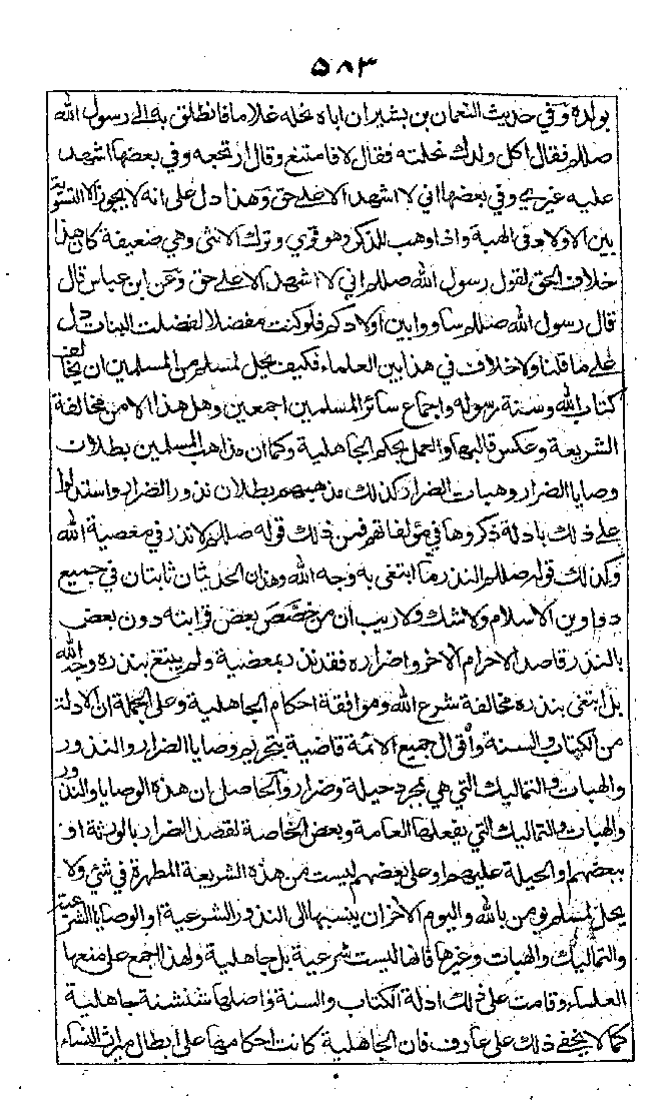 ۵۸۳
بولده وفي حديث النعمان بن بشير ان اباه نحله غلاما فانطلق به الى رسول الله
صللم فقال اكل ولدك نحلته فقال لا فامتنع وقال ارتجعه وفي بعضها اشهد
عليه غيري وفي بعضها اني لا اشهد الا على حق وهذا دل على انه لا يجوز الا التسوية
بين الاولاد في الهبة واذا وهب للذكر وهو قوي وترك الانثى وهي ضعيفة كان هذا
خلاف الحق لقول رسول الله صللم اني لا اشهد الا على حق وعن ابن عباس قال
قال رسول الله صللم ساووا بين اولادكم فلو كنت مفضلا لفضلت البنات دل
على ما قلنا ولا خلاف في هذا بين العلماء فكيف يحل لمسلم من المسلمين ان يخالف
كتاب الله وسنة رسوله واجماع سائر المسلمين اجمعين وهل هذا الا من مخالفة
الشريعة وعكس قالبها والعمل بحكم الجاهلية وكما ان مذاهب المسلمين بطلان
وصايا الضرار وهبات الضرار كذلك مذهبهم بطلان نذور الضرار واستدلوا
على ذلك بادلة ذكروها في مؤلفاتهم فمن ذلك قوله صللم لا نذر في معصية الله
وكذلك قوله صللم النذر ما ابتغى به وجه الله وهذان الحديثان ثابتان في جميع
دواوين الاسلام ولا شك ولا ريب ان من خصص بعض قرابته دون بعض
بالنذر قاصدا لاحرام الآخر واضراره فقد نذر بمعصية ولم يبتغ بنذره وجه الله
بل ابتغى بنذره مخالفة شرع الله وموافقة احكام الجاهلية وعلى الجملة ان الادلة
من الكتاب والسنة واقوال جميع الائمة قاضية بتحريم وصايا الضرار والنذور
والهبات والتماليك التي هي لمجرد حيلة وضرار والحاصل ان هذه الوصايا والنذور
والهبات والتماليك التي يفعلها العامة وبعض الخاصة لقصد الضرار بالورثة او
ببعضهم او الحيلة عليهم او على بعضهم ليست من هذه الشريعة المطهرة في شئ ولا
يحل لمسلم يومن بالله واليوم الآخر ان ينسبها الى النذور الشرعية او الوصايا الشرعية
والتماليك والهبات وغيرها فانها ليست شرعية بل جاهلية ولهذا اجمع على منعها
العلماء وقامت على ذلك ادلة الكتاب والسنة واصلها شنشنة جاهلية
كما لا يخفى ذلك على عارف فان الجاهلية كانت احكامها على ابطال ميراث النساء